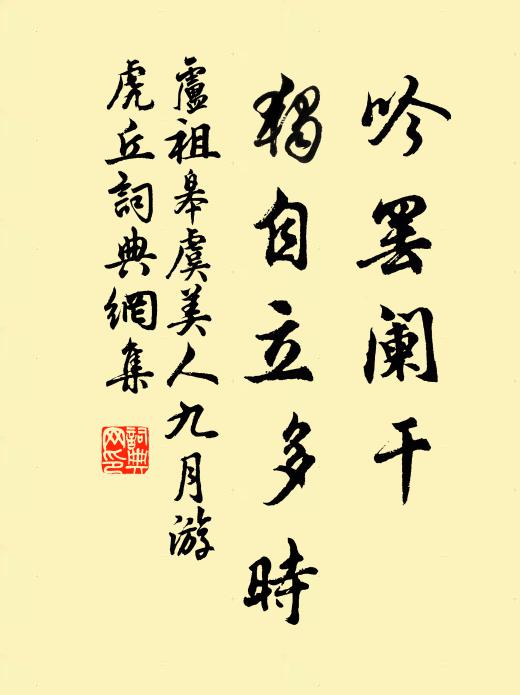 吟罢阑干
獨自立多時
盧祖皋虞美人九月游
虎丘詞典網集
詞典网印